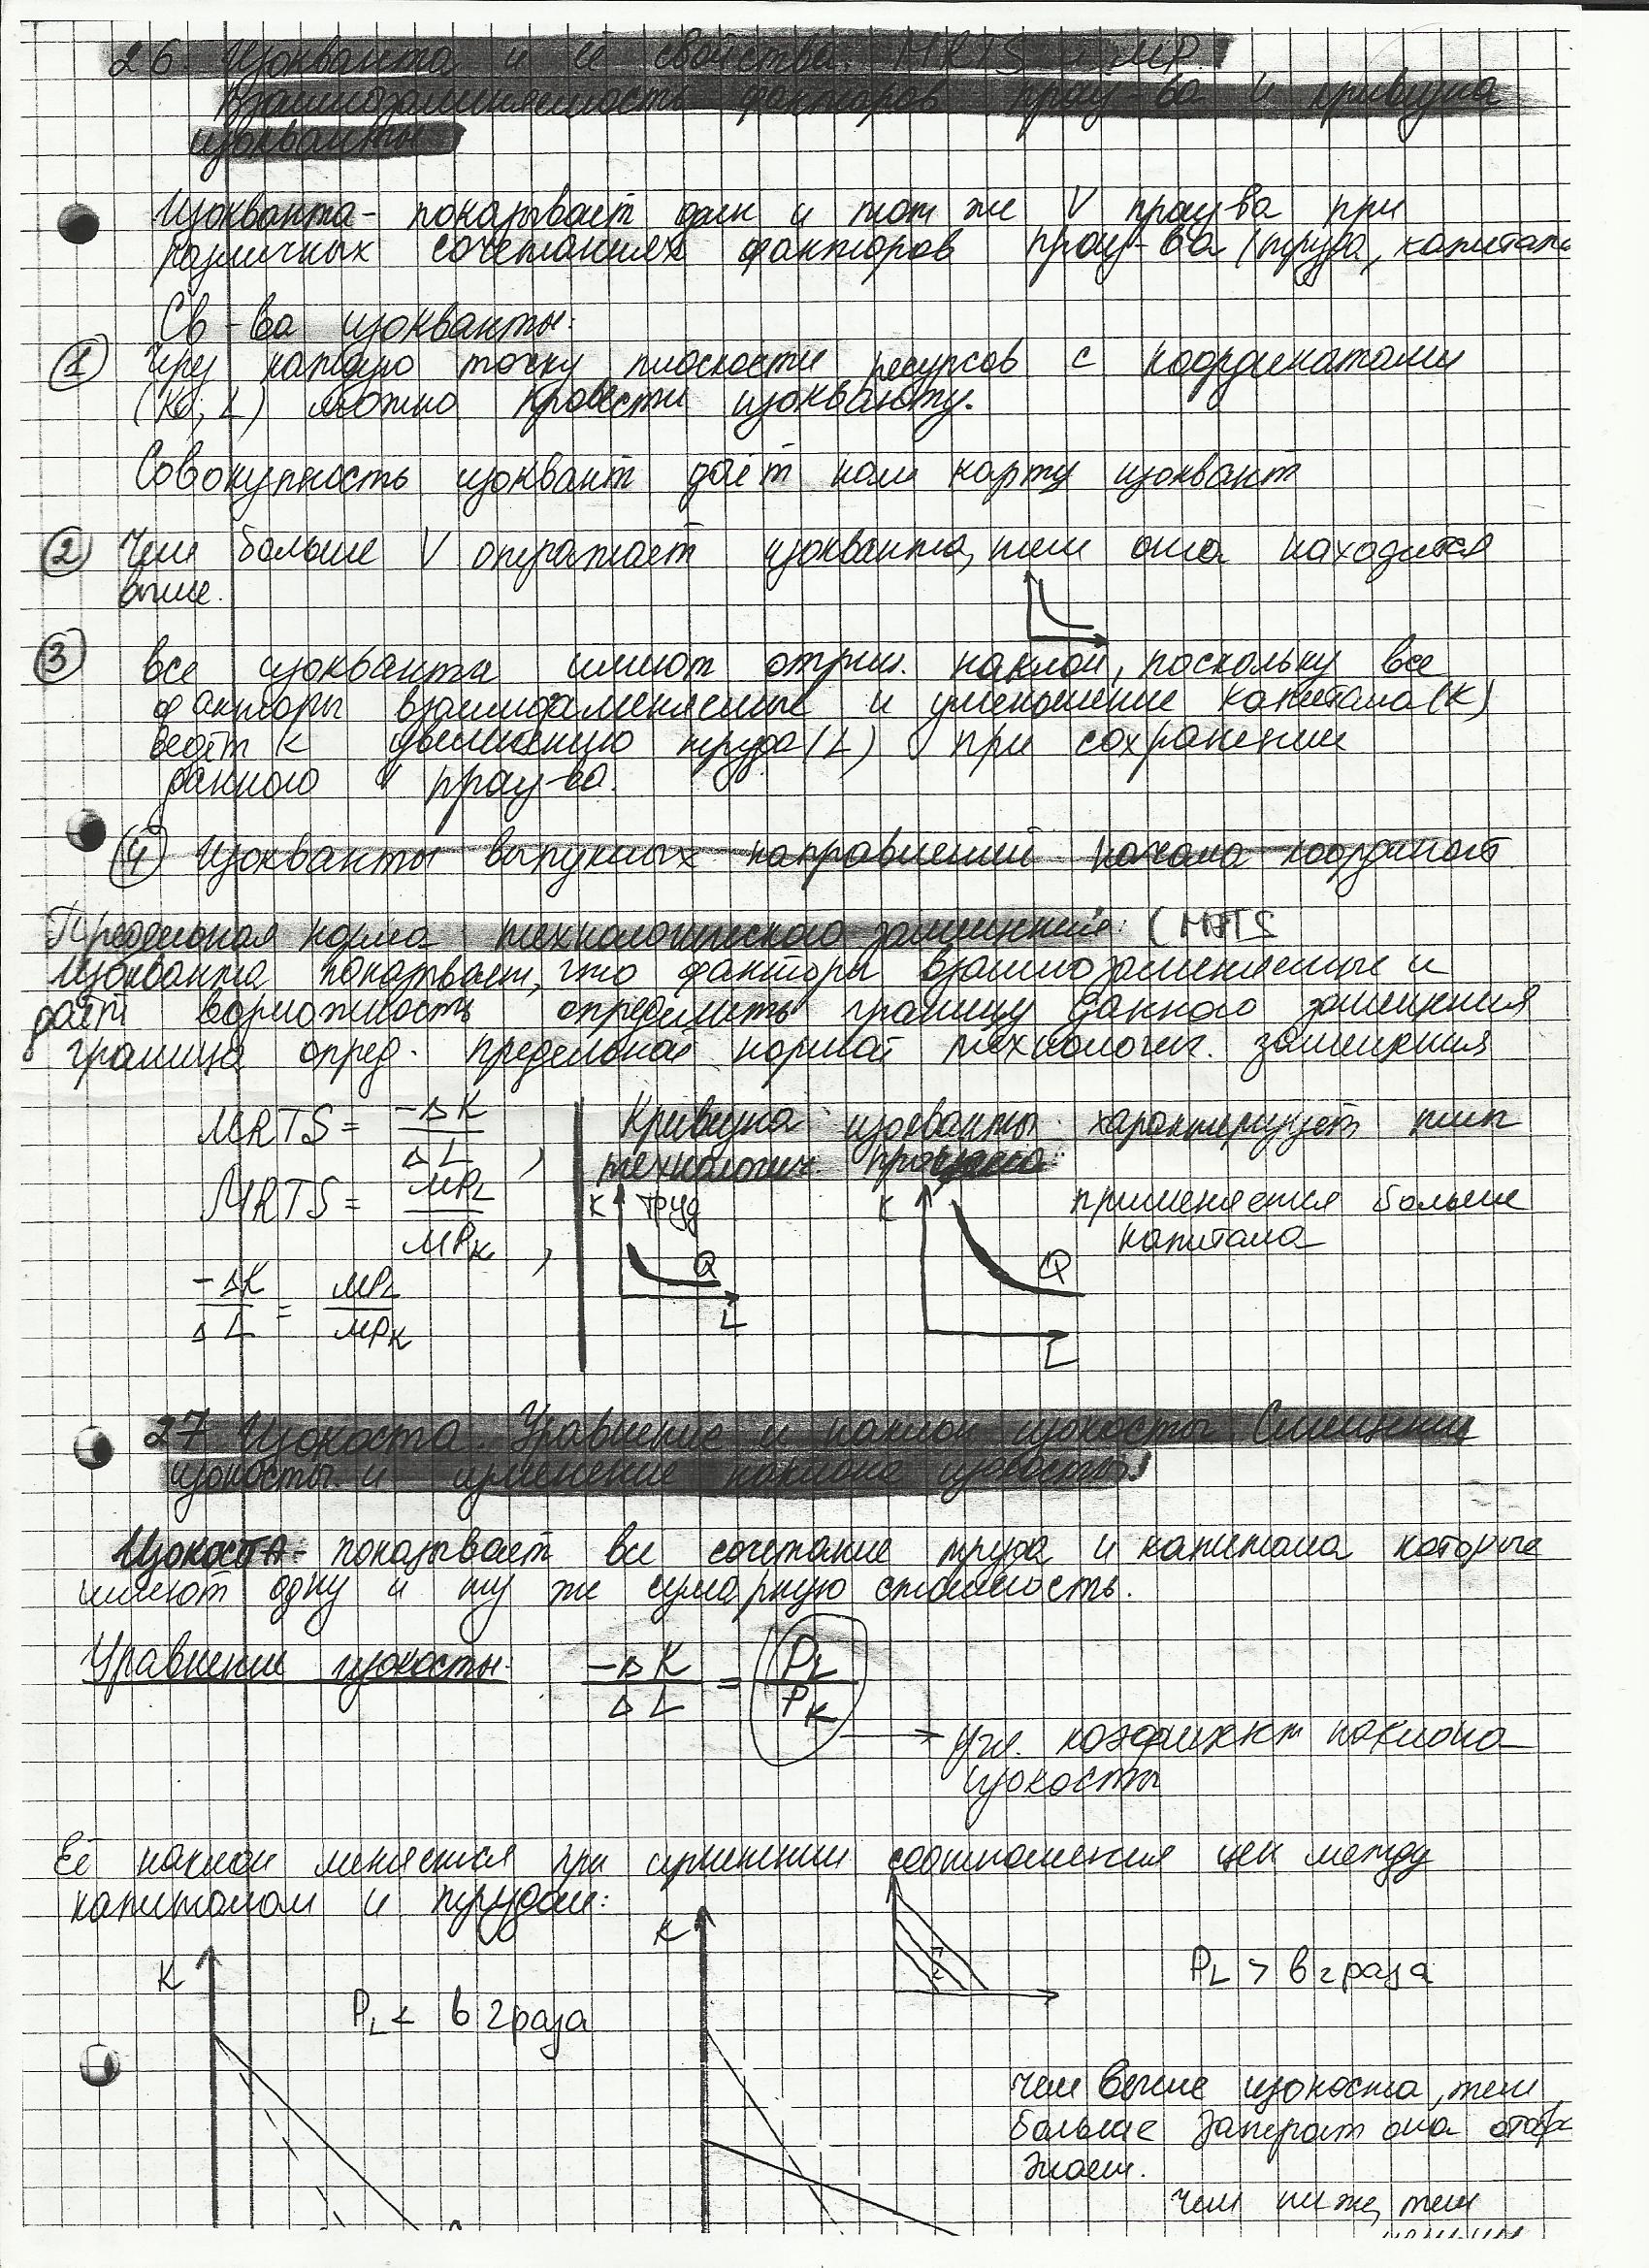 26. Изокванта и её свойства. MRTS и MP
Взаимозаменяемость факторов произ-ва и кривизна
изокванты
Изокванта - показывает один и тот же V произ-ва при
различных сочетаниях факторов произ-ва (труда, капитала
Св-ва изокванты:
① Через каждую точку плоскости ресурсов с координатами
(K; L) можно провести изокванту.
Совокупность изоквант даёт нам карту изоквант
② Чем больше V отражает изокванта, тем она находится
выше.
③ все изокванта имеют отриц. наклон, поскольку все
факторы взаимозаменяемые и уменьшение капитала (K)
ведёт к труда (L) при сохранении
данного V произ-ва.
④ Изокванты выпуклых направлений начала координат
Предельная норма технологического замещения: (MRTS
Изокванта показывает, что факторы взаимозаменяемые и
даёт возможность определить границу данного замещения
граница опред. предельной нормой технологич. замещения
MRTS = -ΔK / ΔL ,
Кривизна изокванты характеризует тип
технологич. процесса:
MRTS = MPL / MPK ,
K труд
Q
L
K
Q
L
применяется больше
капитала
-ΔK / ΔL = MPL / MPK
27 Изокоста. Уравнение и наклон изокосты. Смещение
изокосты и изменение наклона изокосты.
ИзокостА - показывает все сочетание труда и капитала которые
имеют одну и ту же сумарную стоимость.
Уравнение изокосты: -ΔK / ΔL = PL / PK
→ угл. коэффициент наклона
изокосты
Её наклон меняется при изменении соотношения цен между
капиталом и трудом:
K
PL < в 2 раза
K
PL > в 2 раза
чем выше изокоста, тем
больше затрат она отобра
жает.
чем ниже, тем